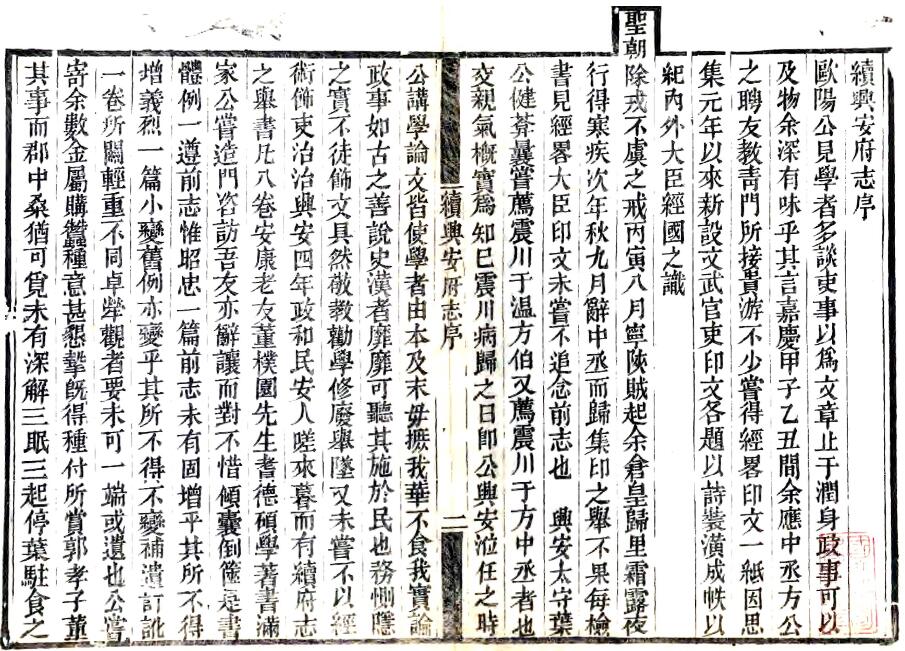 續興安府志序
歐陽公見學者多談吏事以爲文章止于潤身政事可以
及物余深有味乎其言嘉慶甲子乙丑間余應中丞方公
之聘友教靑門所接貴游不少嘗得經畧印文一紙因思
集元年以來新設文武官吏印文各題以詩裝潢成帙以
紀內外大臣經國之識
聖朝除戎不虞之戒丙寅八月寧陝賊起余倉皇歸里霜露夜
行得寒疾次年秋九月辭中丞而歸集印之舉不果每檢
書見經畧大臣印文未嘗不追念前志也 興安太守葉
公健菴曩嘗薦震川于温方伯又薦震川于方中丞者也
交親氣槪實爲知已震川病歸之日卽公興安涖任之時
續興安府志序 二
公講學論文皆使學者由本及末毋摭我華不食我實論
政事如古之善說史漢者靡靡可聽其施於民也務惻隱
之實不徒飾文具然敬教勸學修廢舉墜又未嘗不以經
術飾吏治治興安四年政和民安人嗟來暮而有續府志
之舉書凡八卷安康老友董樸園先生耆德碩學著書滿
家公嘗造門咨訪吾友亦辭讓而對不惜傾囊倒篋是書
體例一遵前志惟昭忠一篇前志未有固增乎其所不得
增義烈一篇小變舊例亦變乎其所不得不變補遺訂訛
一卷所關輕重不同卓犖觀者要未可一端或遺也公嘗
寄余數金屬購蠶種意甚懇摯旣得種付所賞郭孝子董
其事而郡中桑猶可覓未有深解三眠三起停葉駐食之